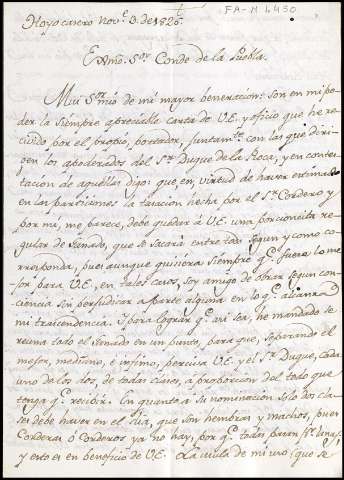 FA-M 1,430
Hoyocasero Nov.e 3 de 1826.
Exmo. S.or Conde de la Puebla.
Mui S.or mio de mi mayor beneracion: son en mi po
der la siempre apreciable carta de V.E. y oficio que he re
civido por el propio, portador, juntam.te con las que diri
gen los apoderados del S.r Duque de la Roca, y en contes
tacion de aquellas digo: que en virtud de haver estimado
en las particiones la tasacion hecha por el S.r Cordero y
por mi, me parece, debe quedar á V.E. una porcioncita re
gular de Ganado, que se sacará entre todo segun y como co
rresponda, pues aunque quisiera siempre q.e fuera lo me
jor para V.E. en tales casos, soy amigo de obrar segun con
ciencia sin perjudicar a parte alguna en lo q.e alcanza
mi trascendencia. I para lograr q.e asi sea, he mandado se
reuna todo el Ganado en un punto, para que, separando el
mejor, mediano, é infimo, perciva V.E. y el S.r Duque, cada
uno de los dos, de todas clases, a proporcion del todo que
tenga q.e recibir. En quanto a su nominacion solo dos cla
ses debe haver en el dia, que son hembras y machos, pues
Corderas ó Corderos ya no hay, por q.e todas pasan
y esto es en beneficio de V.E. La viuda de mi uno (que se